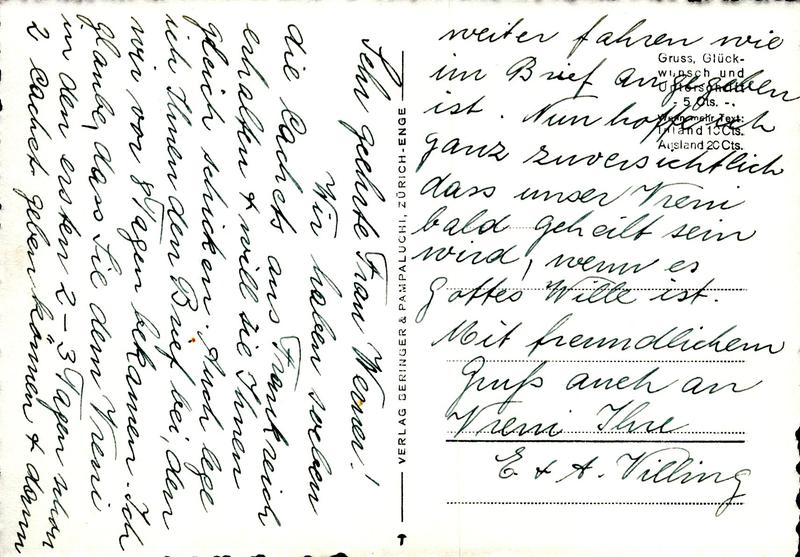 Sehr geehrte Frau Werner!
Wir haben soeben
die Cachets aus Frankreich
erhalten & will sie Ihnen
gleich schicken. Auch lege
ich Ihnen den Brief bei, den
wir vor 8 Tagen bekamen. Ich
glaube, dass Sie dem Vreni
in den ersten 2-3 Tagen schon
2 Cachets geben können & dann
VERLAG BERINGER & PAMPALUCHI, ZÜRICH-ENGE
weiter fahren wie
im Brief angegeben
ist. Nun hoffe ich
ganz zuversichtlich
dass unser Vreni
bald geheilt sein
wird, wenn es
Gottes Wille ist.
Mit freundlichem
Gruß auch an
Vreni Ihre
E & A. Villing
Gruss, Glück-
wunsch und
Unterschrift
- 5 Cts. -
Wenn mehr Text:
Inland 10 Cts.
Ausland 20 Cts.